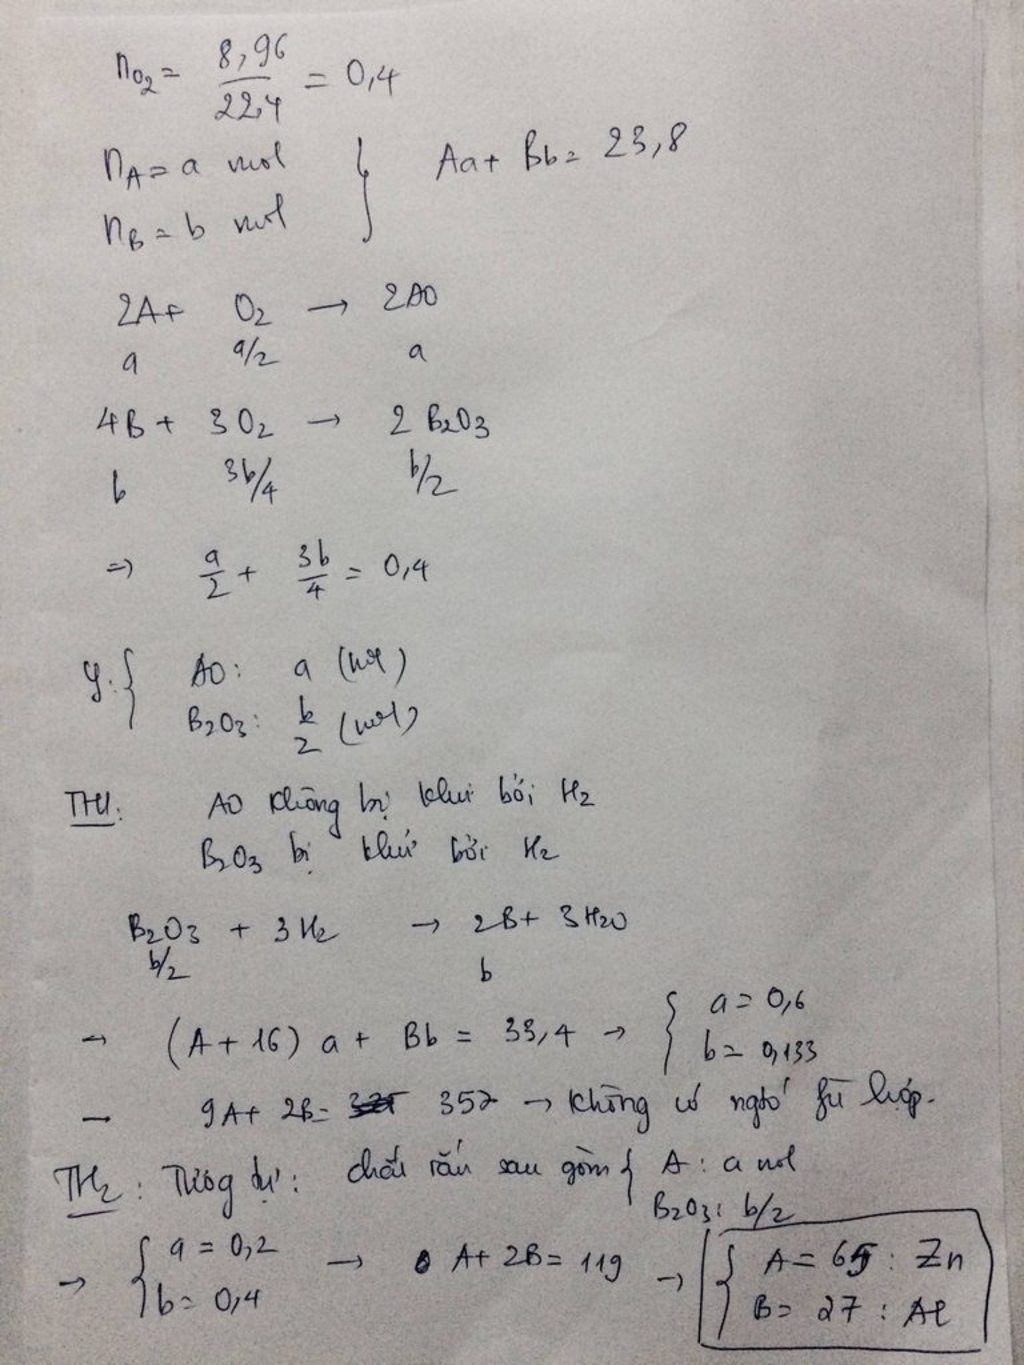 nO2 = 8,96/22,4 = 0,4
nA = a mol
nB = b mol } Aa + Bb = 23,8
2A + O2 → 2AO
a a/2 a
4B + 3O2 → 2B2O3
b 3b/4 b/2
=> a/2 + 3b/4 = 0,4
Y: { AO: a (mol)
B2O3: b/2 (mol)
TH1: AO không bị khử bởi H2
B2O3 bị khử bởi H2
B2O3 + 3H2 → 2B + 3H2O
b/2 b
→ (A + 16) a + Bb = 33,4 → { a = 0,6
b = 0,133
→ 9A + 2B = 357 → không có ngtố fù hợp.
TH2: Tương tự: chất rắn sau gồm { A: a mol
B2O3: b/2
→ { a = 0,2
b = 0,4 → A + 2B = 119 → { A = 65 : Zn
B = 27 : Al